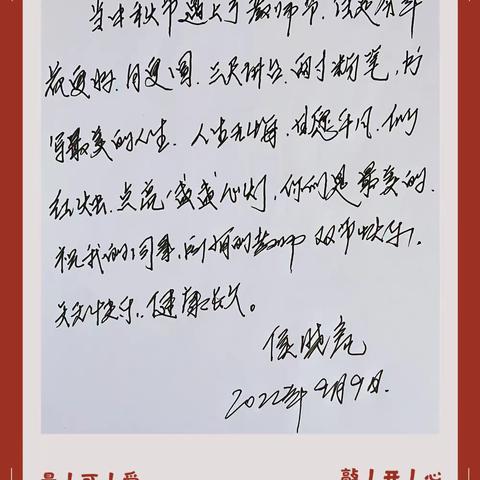 当中秋节遇上了教师节,佳处清辉
花更好.月更圆.三尺讲台.两寸粉笔,书
写最美的人生.人生无悔,甘愿平凡.似
红烛.点亮盏盏心灯,你们是最美的.
祝我的同事,所有的教师双节快乐,
天天快乐.健康长久。
侯晓亮
2022年9月9日.
最 可 爱
敲 开 心